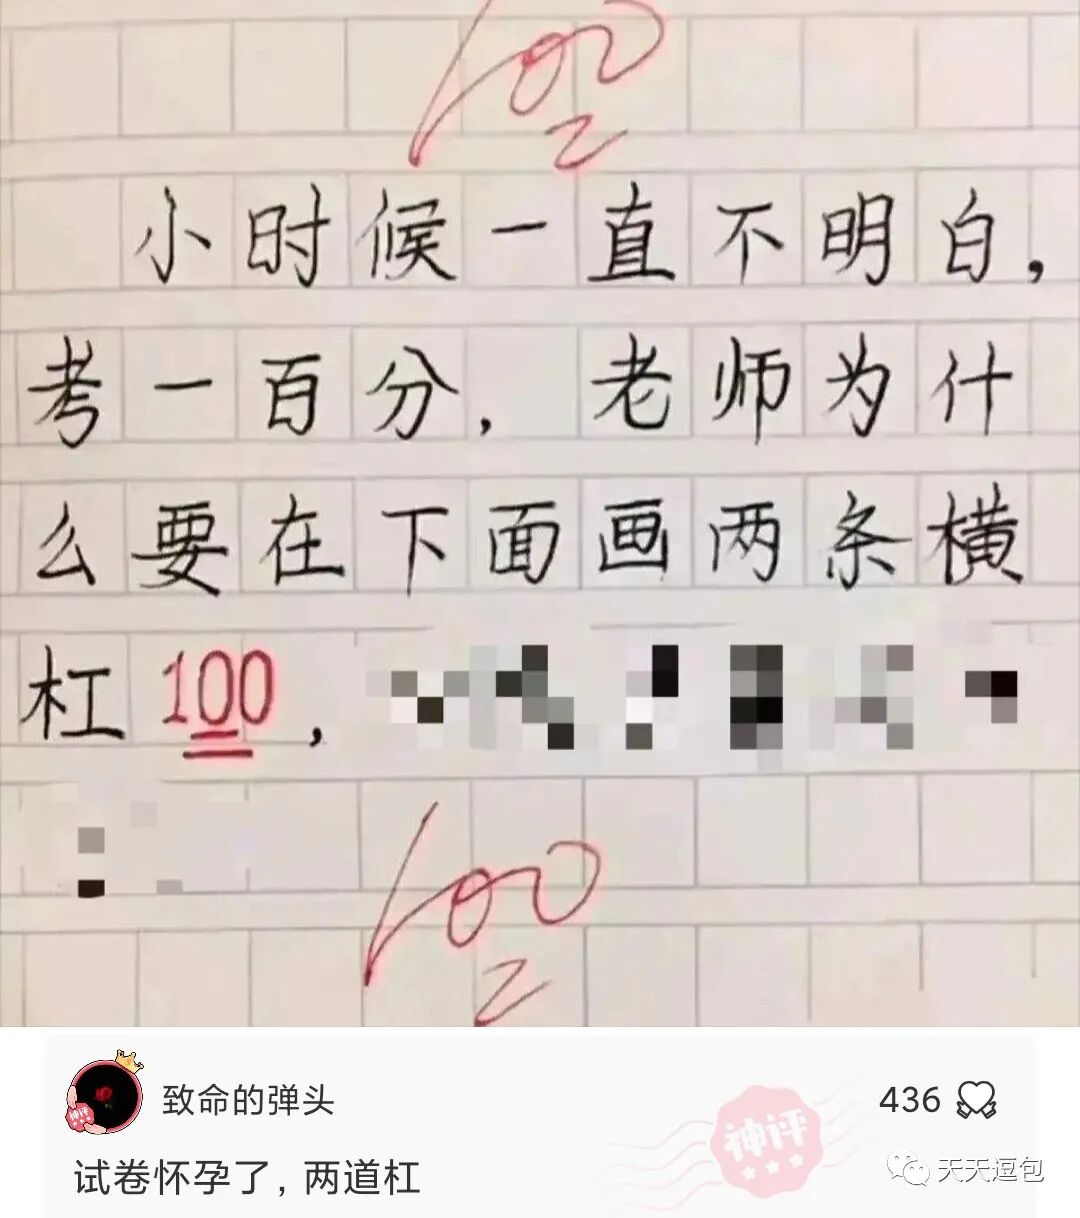 100
小时候一直不明白，
考一百分，老师为什
么要在下面画两条横
杠100，
100
致命的弹头
436
试卷怀孕了，两道杠
神评
天天逗包